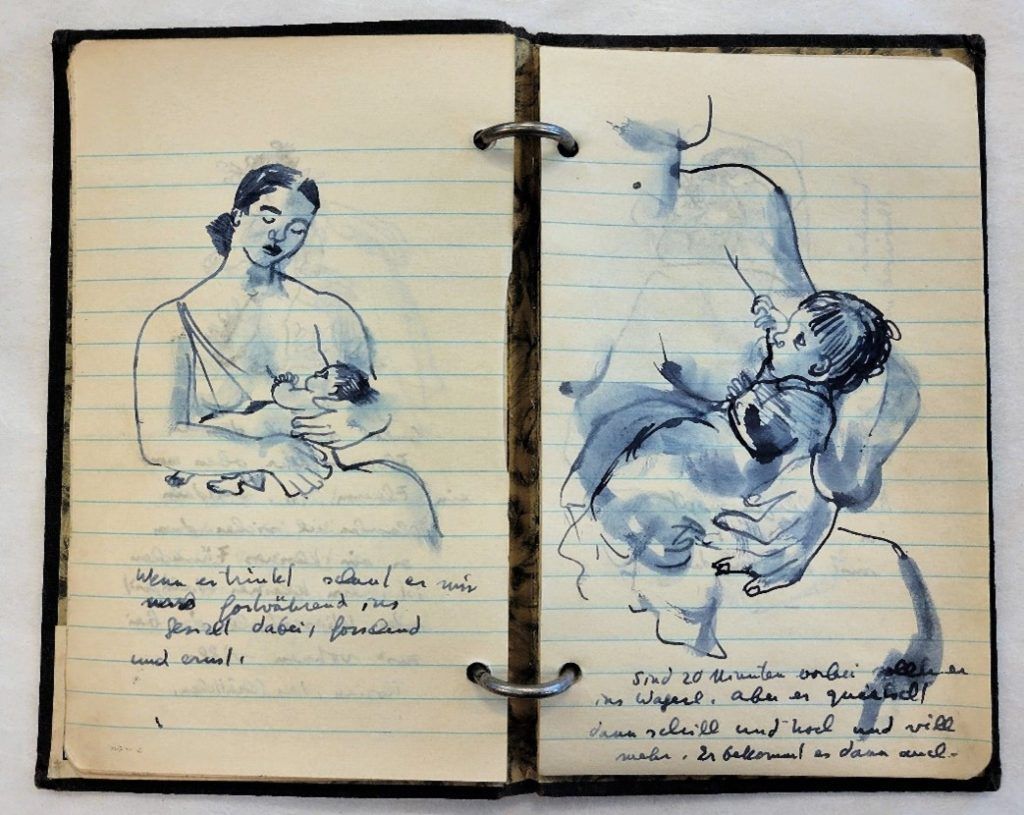 Wenn er trinkt schaut er mir
fortwährend ins
Gesicht dabei, forschend
und ernst.
sind 20 Minuten vorbei soll er
ins Wagerl. Aber er quietscht
dann schrill und hoch und will
mehr. Er bekommt es dann auch.